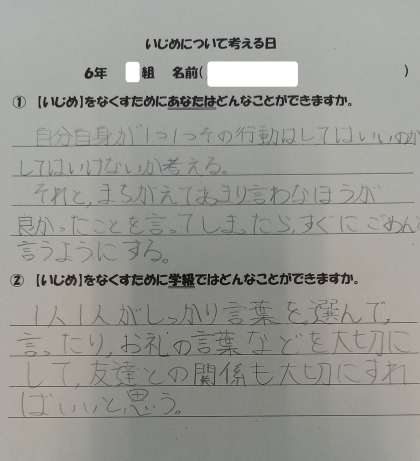 いじめについて考える日
6年 組 名前( )
① 【いじめ】をなくすためにあなたはどんなことができますか。
自分自身が1つ1つその行動はしてはいいのか
してはいけないか考える。
それと、まちがえてあまり言わなほうが
良かったことを言ってしまったら、すぐにごめん
言うようにする。
② 【いじめ】をなくすために学級ではどんなことができますか。
1人1人がしっかり言葉を選んで、
言ったり、お礼の言葉などを大切に
して、友達との関係も大切にすれ
ばいいと思う。